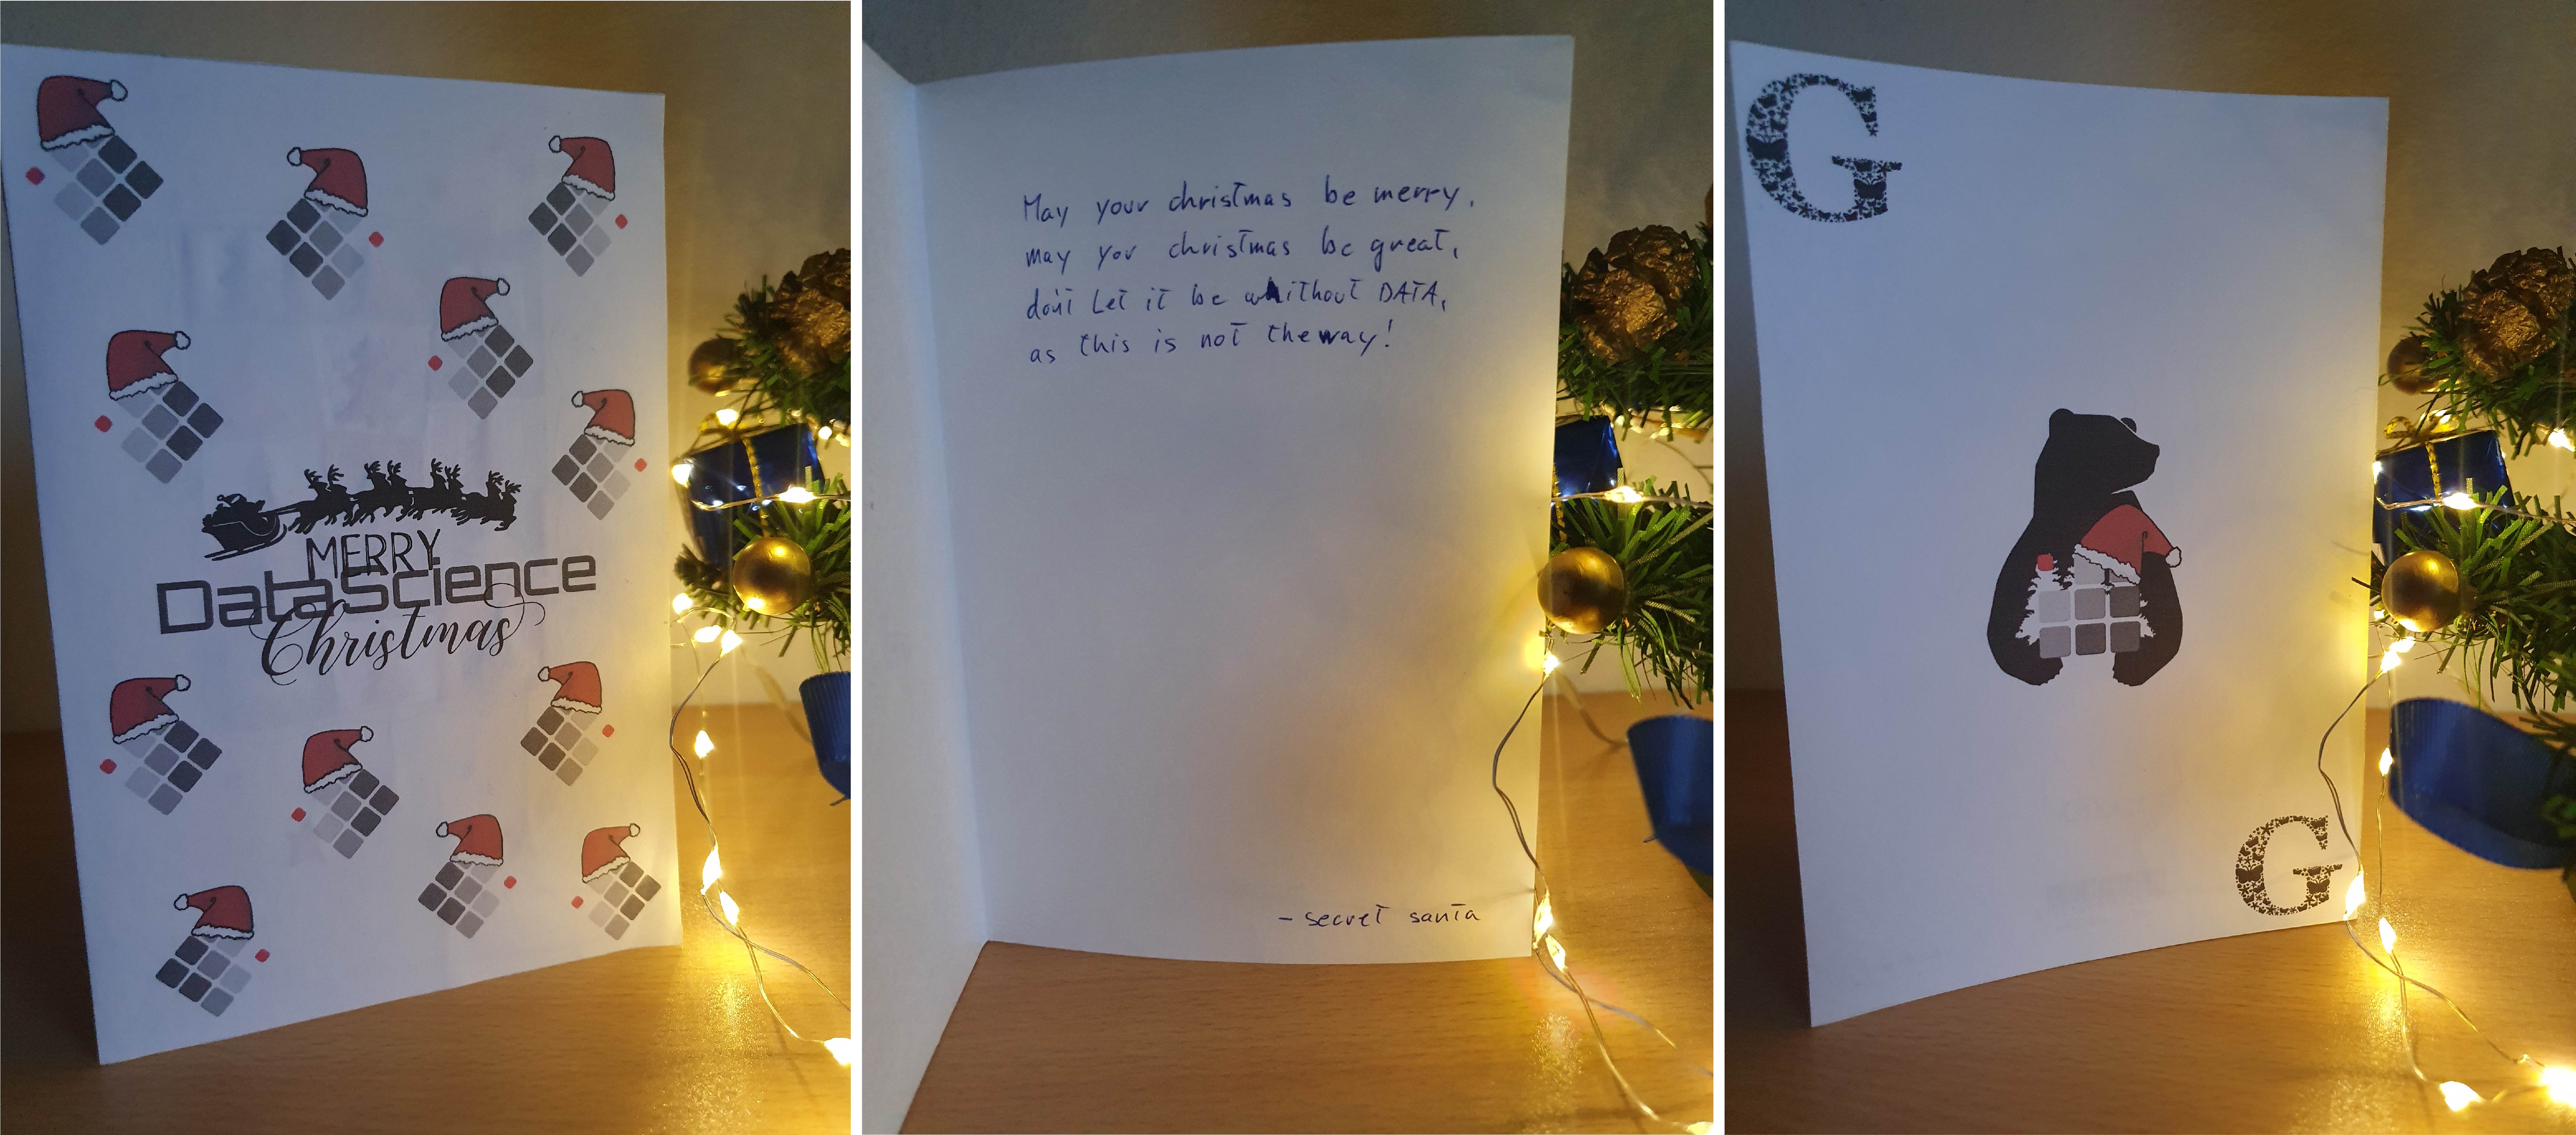 MERRY
DataScience
Christmas
May your christmas be merry,
may yor christmas be great,
don't Let it be without DATA,
as this is not the way!
- secret santa
G
G